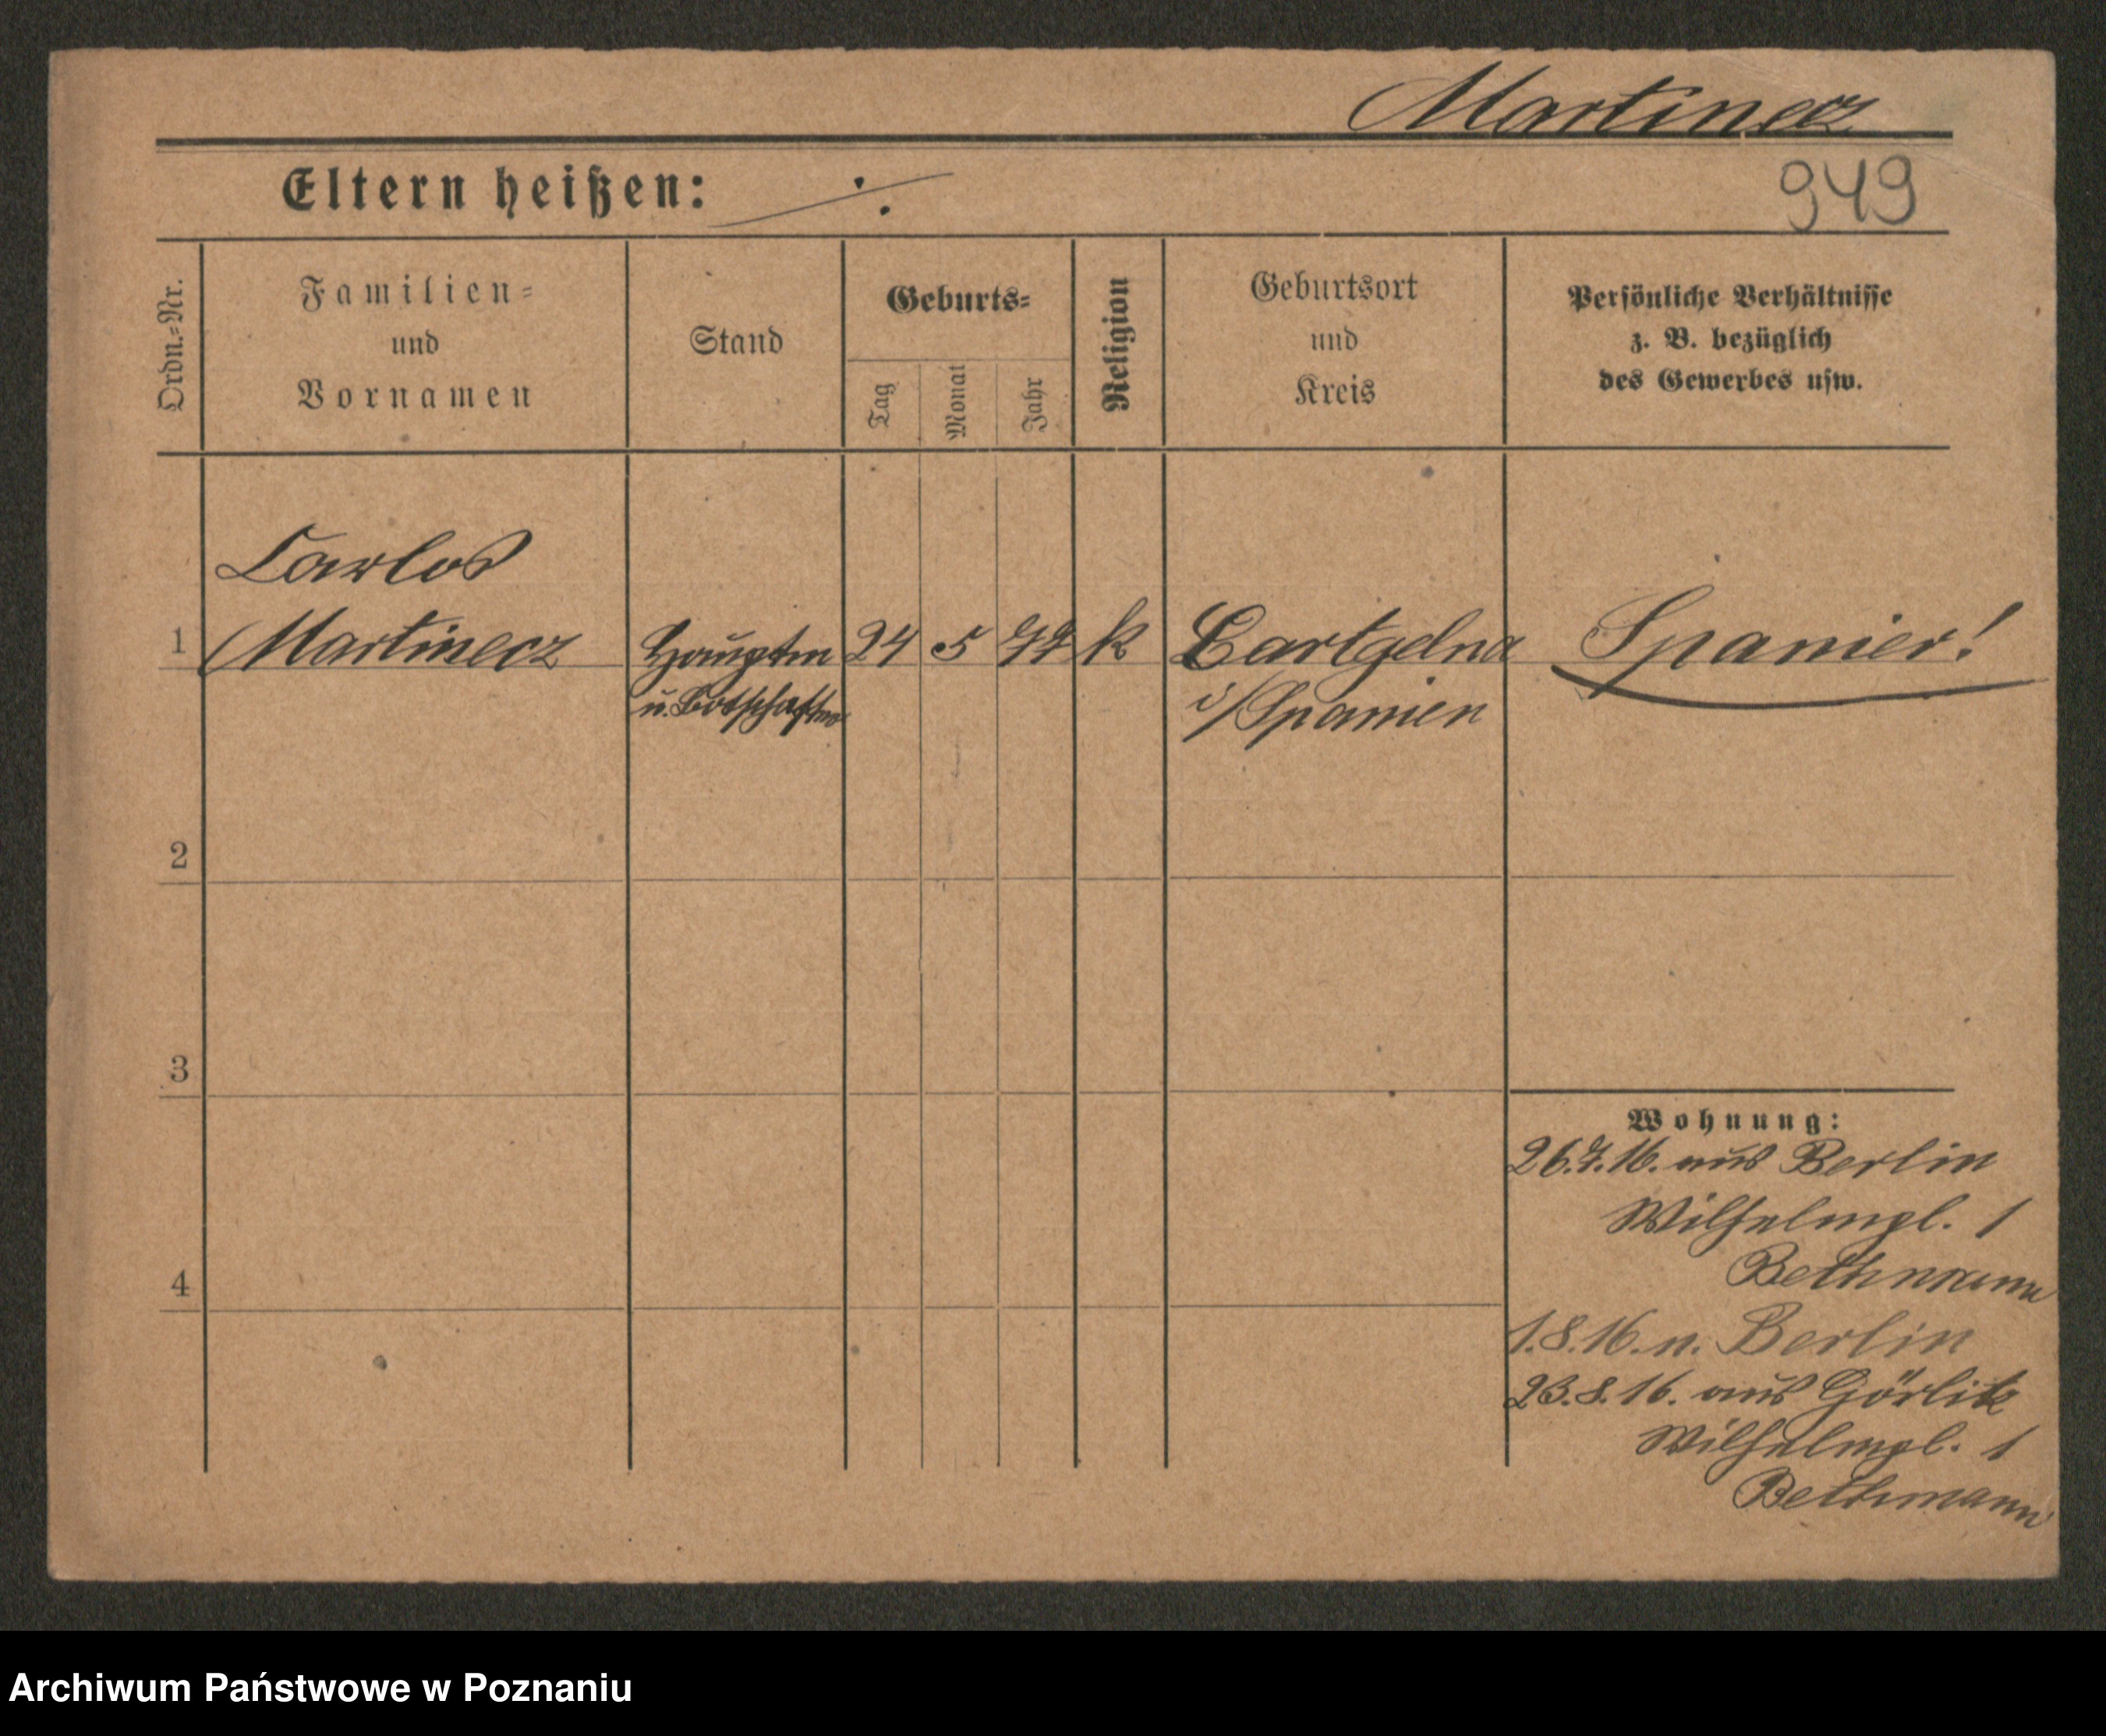 Martinecz
949
Eltern heißen: ./.
Ordn.-Nr.
Familien-
und
Vornamen
Stand
Geburts-
Tag
Monat
Jahr
Religion
Geburtsort
und
Kreis
Persönliche Verhältnisse
z. B. bezüglich
des Gewerbes usw.
Carlos
1 Martinecz Hauptm 24 5 77 k Cartgelna Spanier!
i/Spanien
2
3
4
Wohnung:
26.7.16. aus Berlin
Wilhelmpl. 1
Bethmann
1.8.16. n. Berlin
23.8.16. aus Görlitz
Wilhelmpl. 1
Bethmann
Archiwum Państwowe w Poznaniu